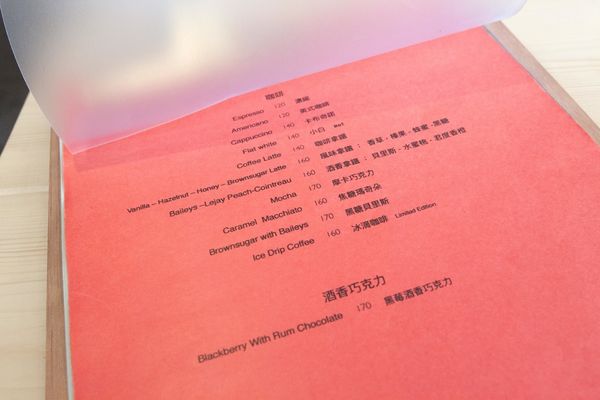 咖啡
Espresso 120 濃縮
Americano 120 美式咖啡
Cappuccino 140 卡布奇諾
Flat white 140 小白 Hot
Coffee Latte 140 咖啡拿鐵
Vanilla – Hazelnut – Honey – Brownsugar Latte 160 風味拿鐵：香草、榛果、蜂蜜、黑糖
Baileys –Lejay Peach-Cointreau 160 酒香拿鐵：貝里斯、水蜜桃、君度香橙
Mocha 170 摩卡巧克力
Caramel Macchiato 160 焦糖瑪奇朵
Brownsugar with Baileys 170 黑糖貝里斯
Ice Drip Coffee 160 冰滴咖啡 Limited Edition
酒香巧克力
Blackberry With Rum Chocolate 170 黑莓酒香巧克力